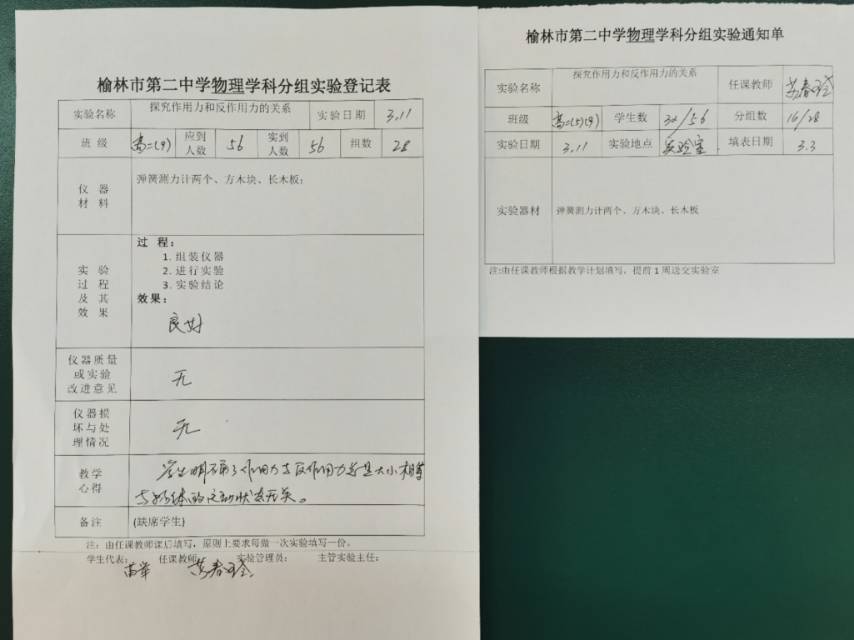 榆林市第二中学物理学科分组实验登记表
实验名称 探究作用力和反作用力的关系 实验日期 3.11
班级 高二(9) 应到人数 56 实到人数 56 组数 28
仪器材料 弹簧测力计两个、方木块、长木板;
实验过程及其效果
过 程:
1. 组装仪器
2. 进行实验
3. 实验结论
效果:
良好
仪器质量或实验改进意见 无
仪器损坏与处理情况 无
教学心得 学生明确了作用力与反作用力总是大小相等
与物体的运动状态无关。
备注 (缺席学生)
注:由任课教师课后填写,原则上要求每做一次实验填写一份。
学生代表: 任课教师: 实验管理员: 主管实验主任:
榆林市第二中学物理学科分组实验通知单
实验名称 探究作用力和反作用力的关系 任课教师
班级 高二(5)(9) 学生数 32/56 分组数 16/28
实验日期 3.11 实验地点 实验室 填表日期 3.3
实验器材 弹簧测力计两个、方木块、长木板
注:由任课教师根据教学计划填写,提前1周送交实验室